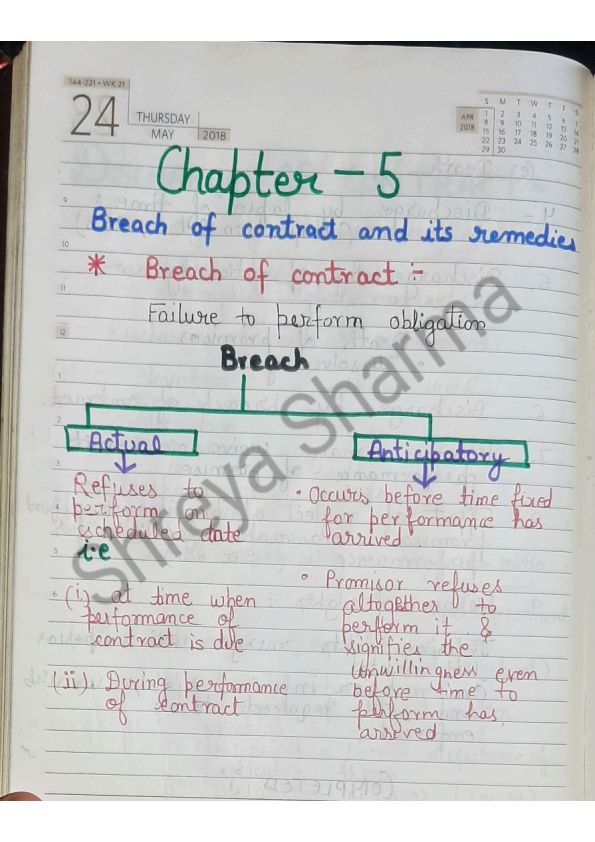 144-221 • WK 21
24
THURSDAY
MAY
2018
APR
2018
S M T W T F S
1 2 3 4 5 6 7
8 9 10 11 12 13 14
15 16 17 18 19 20 21
22 23 24 25 26 27 28
29 30
Chapter - 5
9
Breach of contract and its remedies
10
* Breach of contract :-
11
Failure to perform obligation
12
Breach
1
2
Actual
Anticipatory
3
Refuses to
4 perform on
scheduled date
5 i.e
6 (i) at time when
performance of
contract is due
(ii) During performance
of contract
• Occurs before time fixed
for performance has
arrived.
• Promisor refuses
altogether to
perform it &
signifies the
unwillingness even
before time to
perform has
arrived
Shreya Sharma